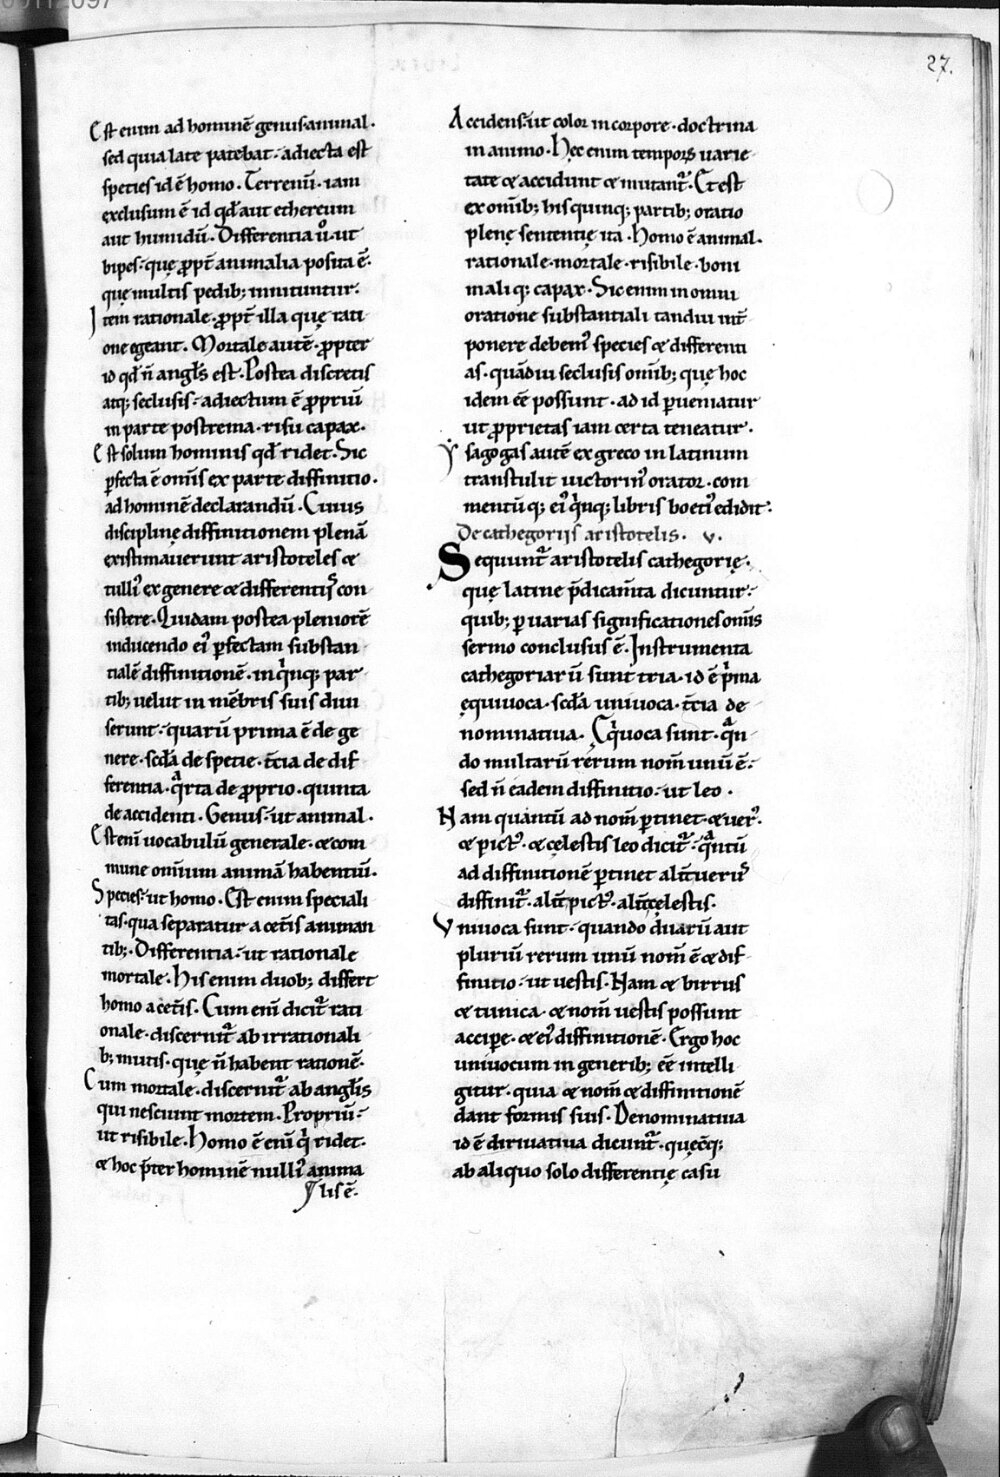 27.
Est enim ad hominē genus·animal·
sed quia late patebat· adiecta est
species id ē homo· Terrenū· iam
exclusum ē id qđ aut ethereum
aut humidū· Differentia ů· ut
bipes· quę ꝓpt̄ animalia posita ē·
quę multis pedib; innituntur·
Item rationale· ꝓpt̄ illa quę rati
one egeant· Mortale autē· ꝓpter
id qđ n̄ angl̄s est· Postea discretis
atq; seclusis· adiectum ē ꝓpriū
in parte postrema· risu capax·
Est solum hominis qđ ridet· Sic
ꝑfecta ē om̄is ex parte diffinitio·
ad hominē declarandū· Cuius
disciplinę diffinitionem plenā
existimauerunt aristoteles &
tulli᾽ ex genere & differentiis con
sistere· Quidam postea pleniorē
inducendo ei᾽ ꝑfectam substan
tialē diffinitionē· in q̇nq; par
tib; uelut in mēbris suis diui
serunt· quarū prima ē de ge
nere· scđa de specie· t̄cia de dif
ferentia· qᵃrta de ꝓprio· quinta
de accidenti· Genus· ut animal·
Est eni̅ uocabulū generale· & com
mune omi̅um animā habentiū·
Species· ut homo· Est enim speciali
tas· qua separatur a cet̄is animan
tib;· Differentia· ut rationale
mortale· His enim duob; differt
homo a cet̄is· Cum eni̅ dicit᷑ rati
onale· discernit᷑ ab irrationali
b; mutis· quę n̄ habent rationē·
Cum mortale· discernit᷑ ab angl̄is
qui nesciunt mortem· Propriū·
ut risibile· Homo ē eni̅ q̇ ridet·
& hoc p̄ter hominē nulli᾽ anima
lis ē·
Accidens· ut color in corpore· doctrina
in animo· Hęc enim temporꝫ uarie
tate & accidunt & mutant᷑· Et est
ex omi̅b; his quinq; partib; oratio
plenę sententię ita· Homo ē animal·
rationale· mortale· risibile· boni
maliq; capax· Sic enim in omni
oratione substantiali tandiu int̄
ponere debem᾽ species & differenti
as· quādiu seclusis omi̅b; quę hoc
idem ēē possunt· ad id ꝑueniatur
ut ꝓprietas iam certa teneatur·
Ysagogas autē ex greco in latinum
transtulit uictorin᾽ orator· com
mentūq; ei᾽ q̇nq; libris boeti᾽ edidit·
De cathegoriis aristotelis· v·
Sequunt᷑ aristotelis cathegorię·
quę latine p̄dicam̄ta dicuntur·
quib; ꝑ uarias significationes om̄is
sermo conclusus ē· Instrumenta
cathegoriarū sunt tria· id ē p̍ma
ęquiuoca· scđa uniuoca· t̄cia de
nominatiua· Ęq̍uoca sunt· qᵃn
do multarū rerum nom̄ unū ē·
sed n̄ eadem diffinitio· ut leo·
Nam quantū ad nom̄ ꝑtinet· & uer᾽·
& pict᾽· & cęlestis leo dicit᷑· qᵃntū
ad diffinitionē ꝑtinet alit̄ uerus
diffinit᷑· alit̄ pict᾽· alit̄ cęlestis·
Uniuoca sunt· quando duarū aut
pluriū rerum unū nom̄ ē & dif
finitio· ut uestis· Nam & birrus
& tunica· & nom̄ uestis possunt
accipe̅· & ei᾽ diffinitionē· Ergo hoc
uniuocum in generib; ēē intelli
gitur· quia & nom̄ & diffinitionē
dant formis suis· Denominatiua
id ē diriuatiua dicunt᷑· quęcūq;
ab aliquo solo differentię casu